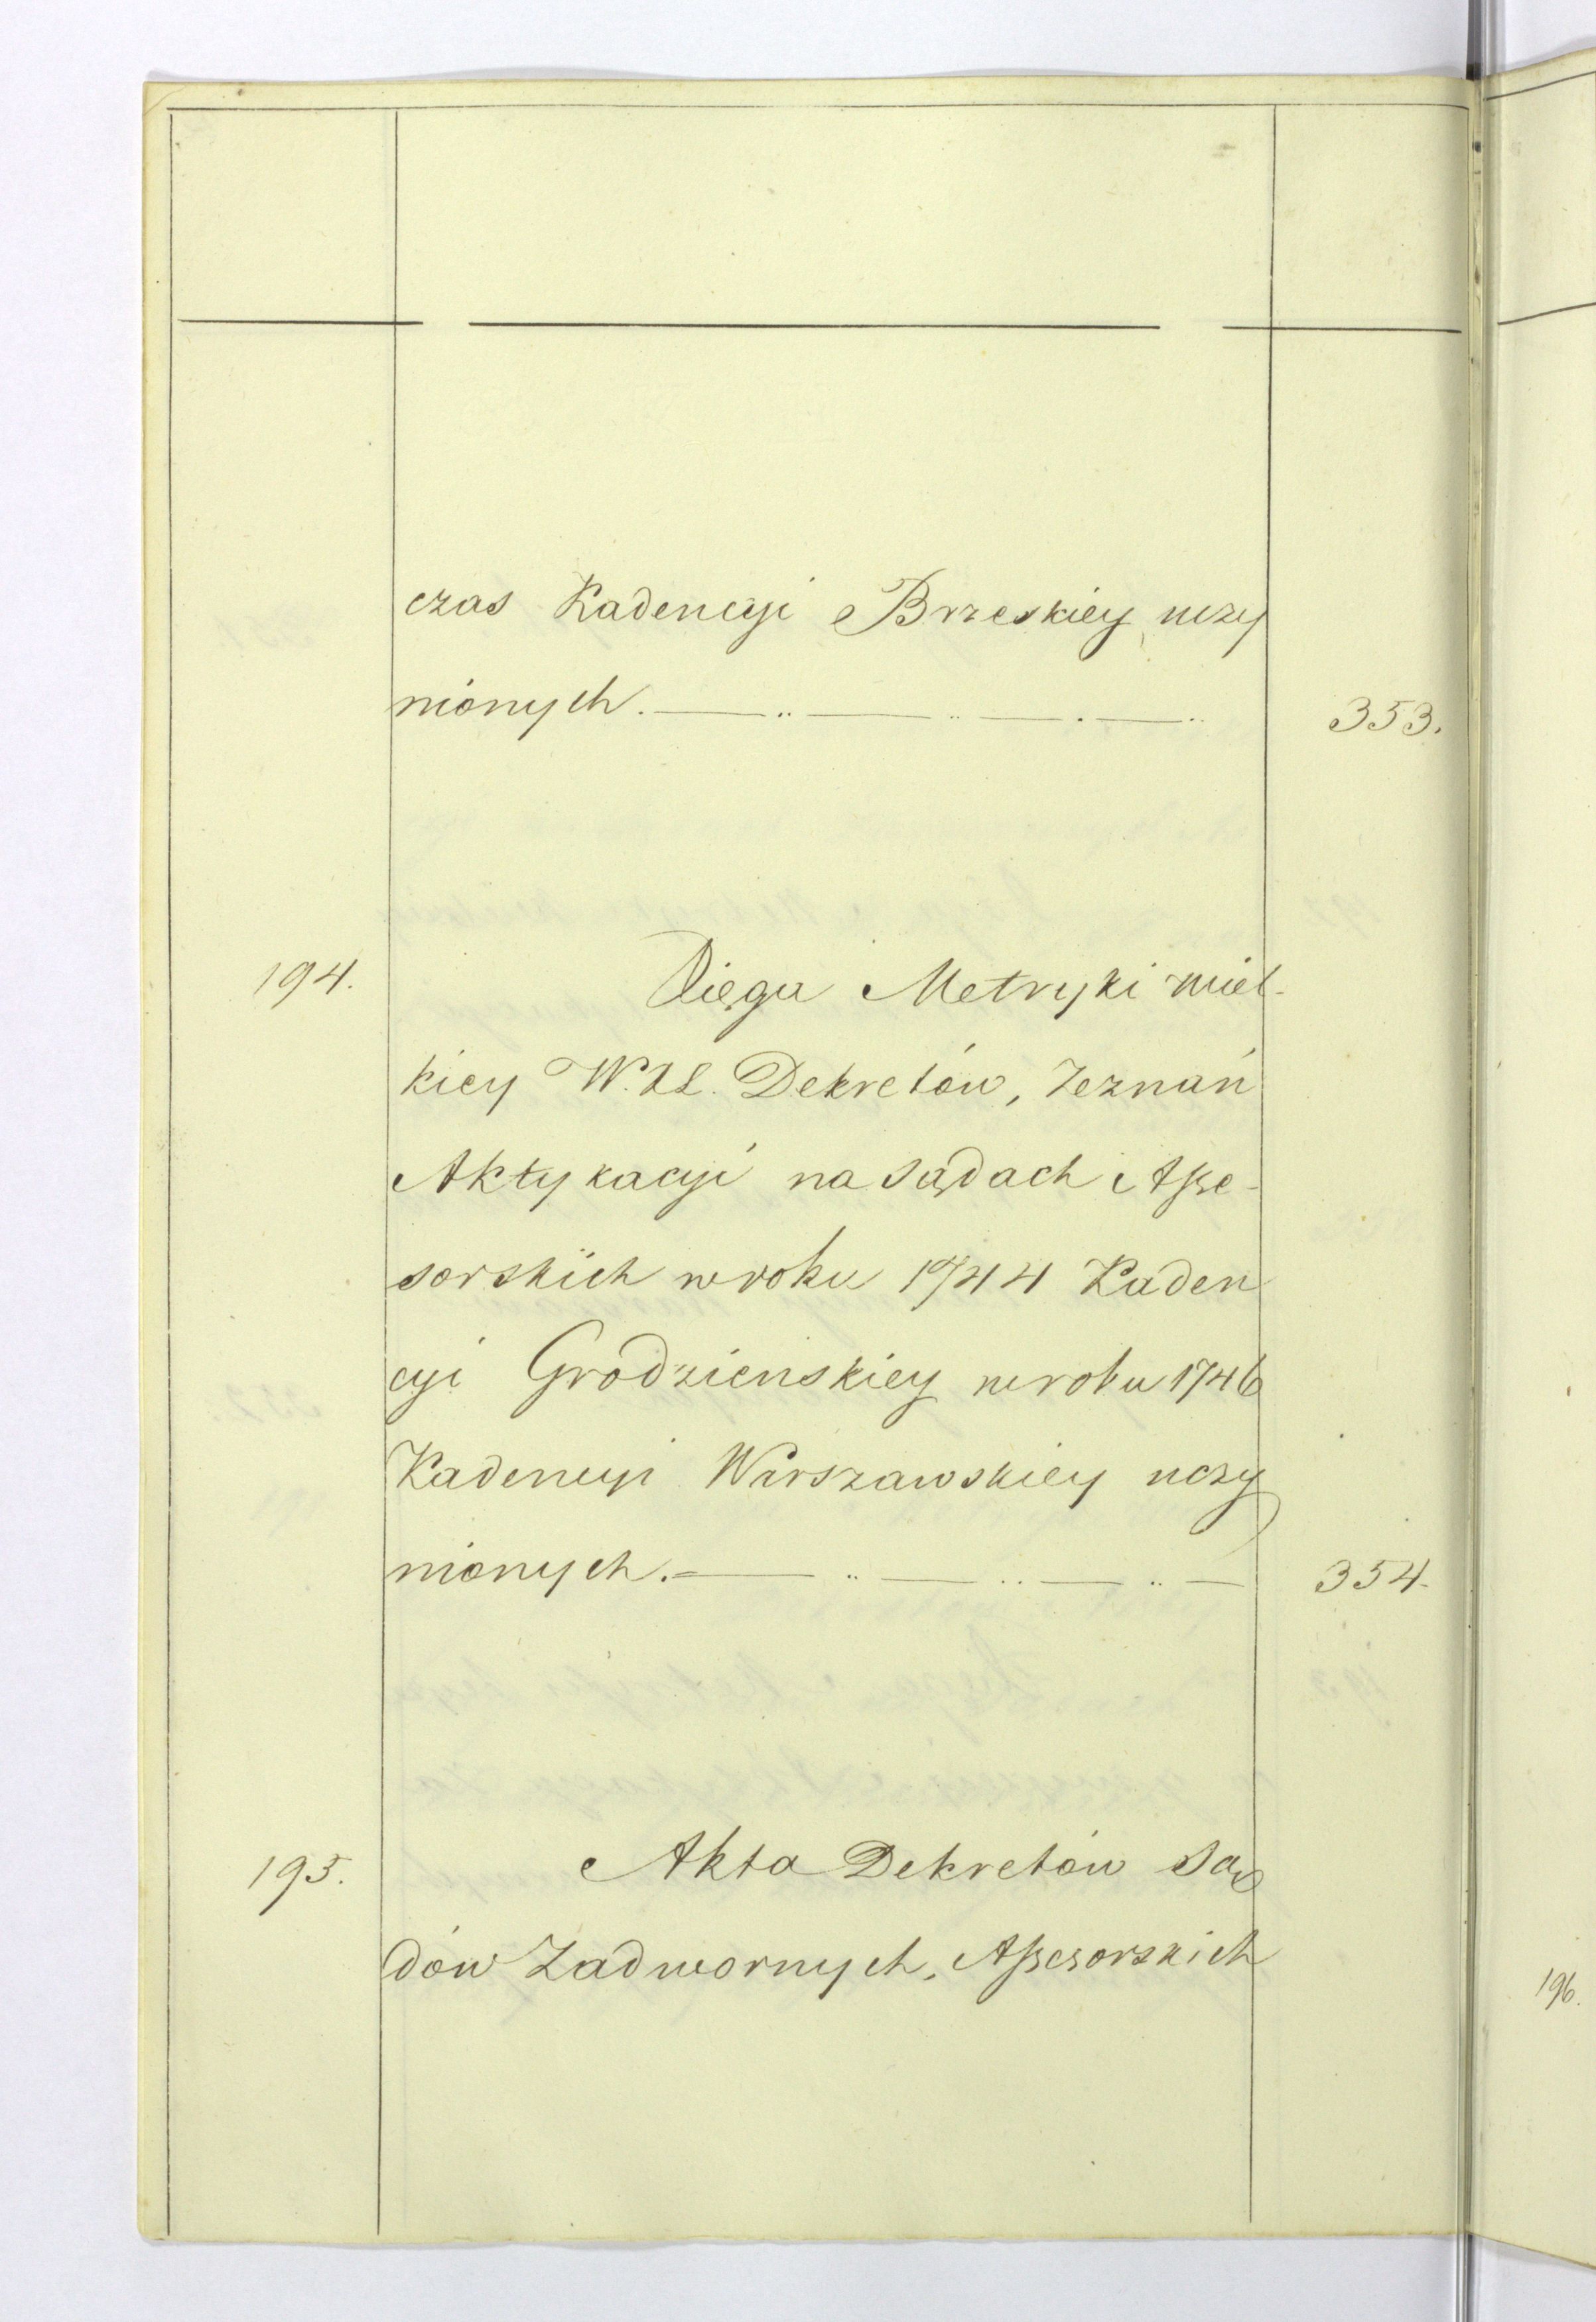 czas Kadencyi Brzeskiey uczy
nionych. 353.
194. Xięga Metryki wiel-
kiey W.X.L. Dekretów, Zeznań
Aktykacyi na Sądach Asse-
sorskich w roku 1744 Kaden
cyi Grodzienskiey w roku 1746
Kadencyi Warszawskiey uczy
nionych. 354.
195. Akta Dekretów Są
dów Zadwornych, Assesorskich
196.